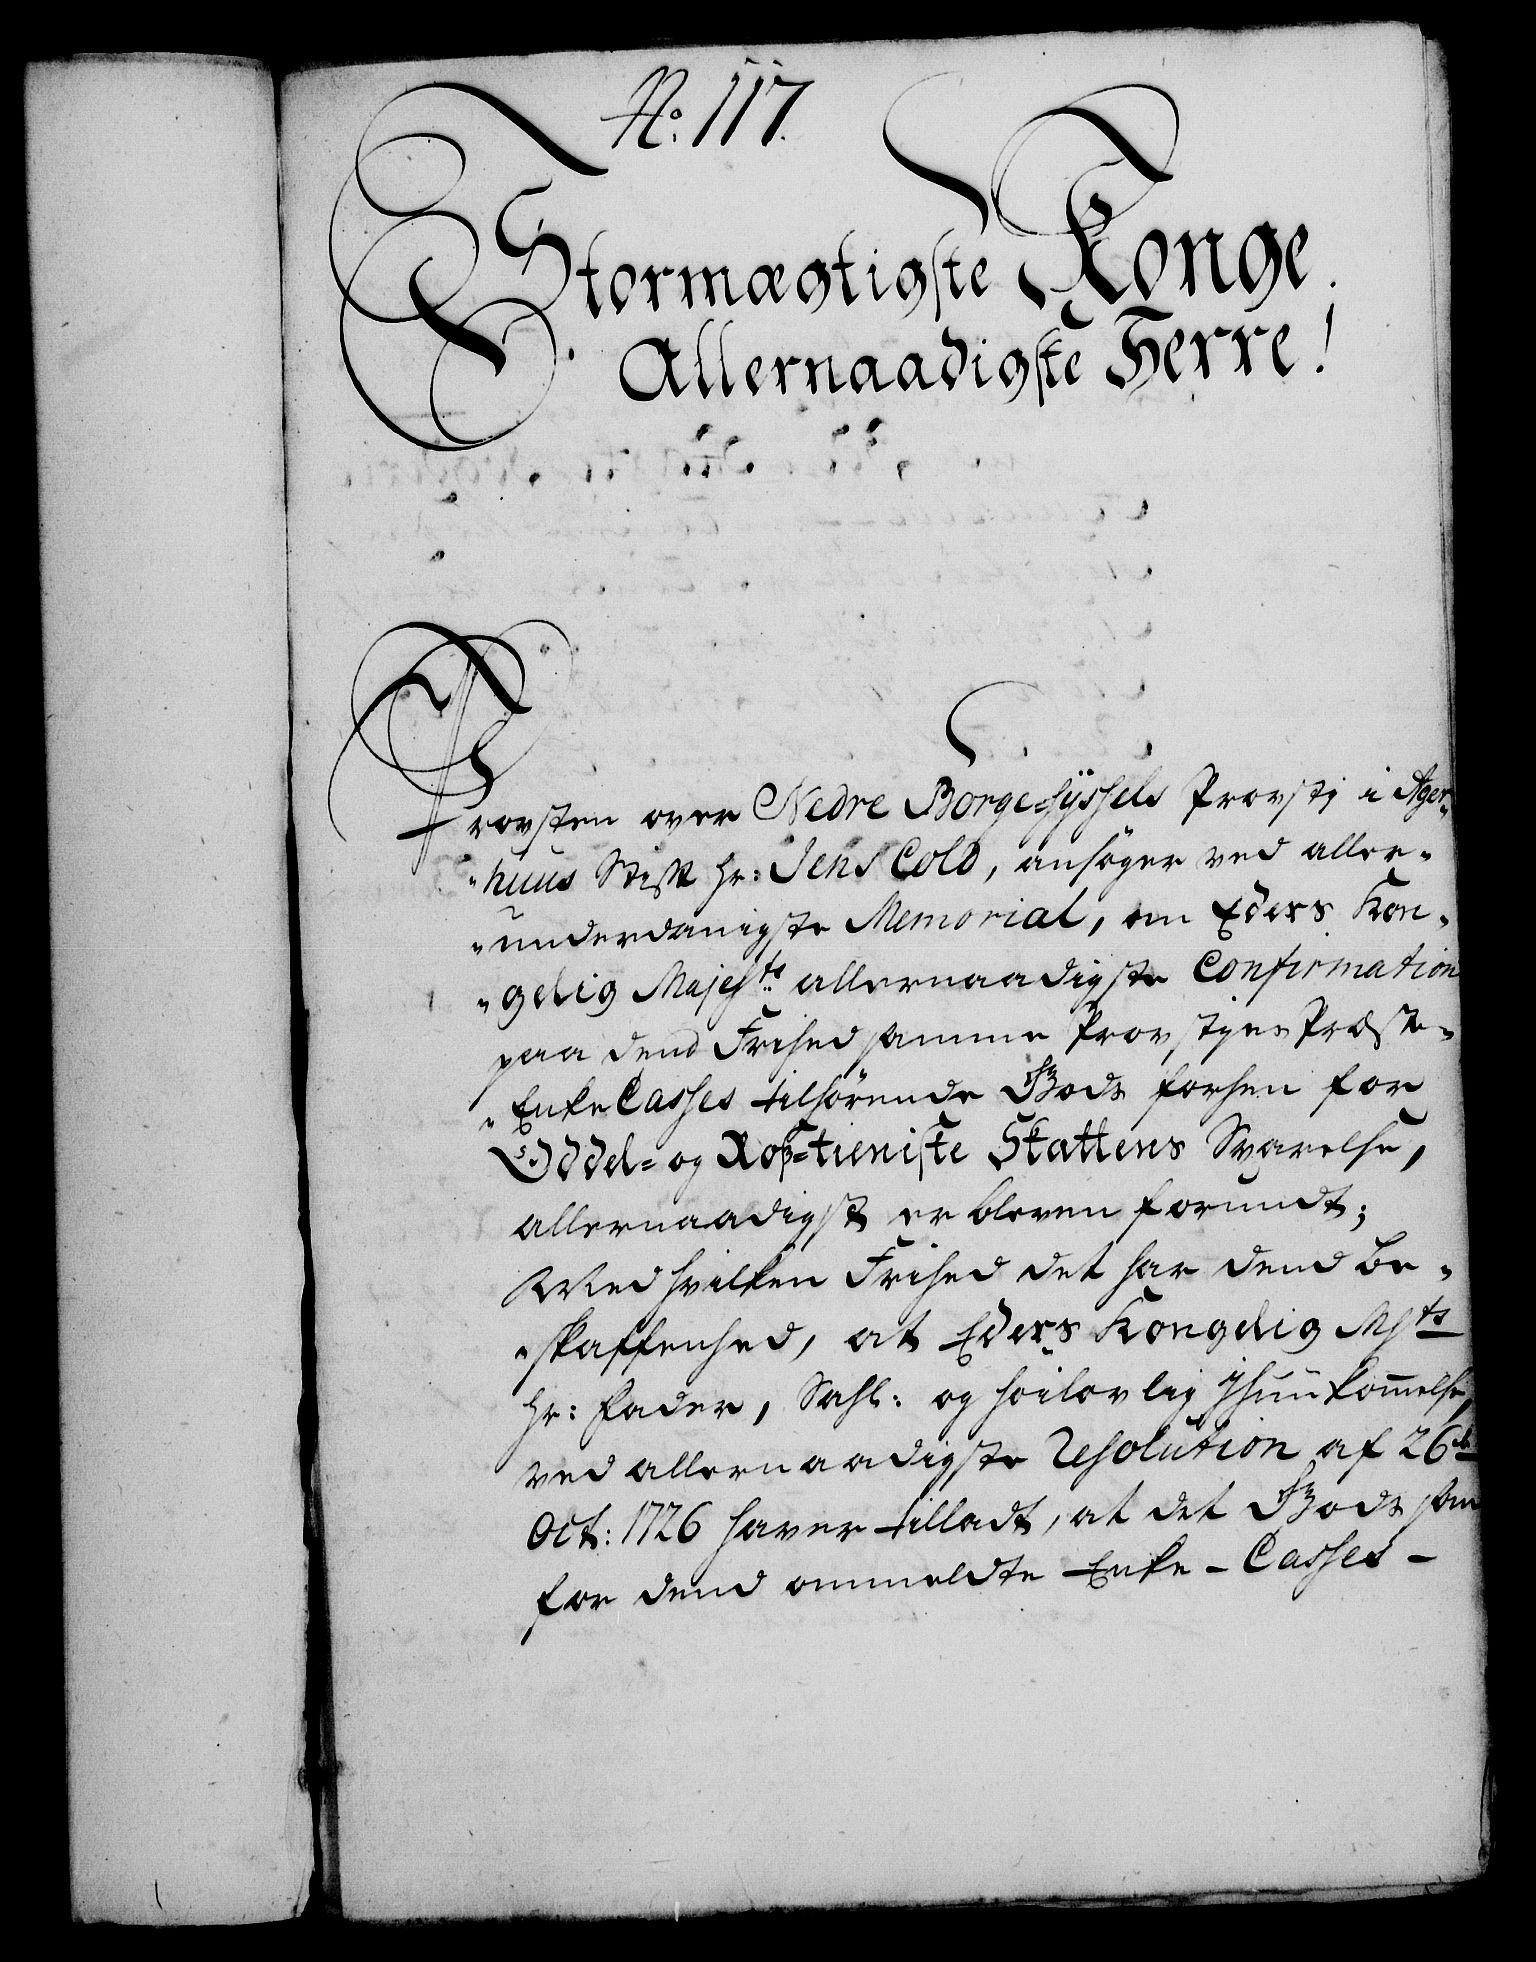 No: 117.
Stormægtigste Konge.
Allernaadigste Herre!
Provsten over Nedre Borge-Syssels Provstj i Ager-
-huus Stift Hr: Jens Cold, ansøger ved aller-
-underdanigste Memorial, om Eders Kon-
-gelig Majests: allernaadigste Confirmation
paa dend Friehed samme Provstjes Præste-
-Enke Casses tilhørende Gods forhen for
Oddel- og Roß-tieniste Skattens Svarelse,
allernaadigst er bleven forundt;
Med hvilken Friehed det har dend be-
-skaffenhed, at Eders Kongelig Mayts
Hr: Fader, Sahl: og høilovlig Ihuukommelse,
ved allernaadigste Resolution af 26de
Oct: 1726 haver tilladt, at det Gods som
for dend ommeldte Enke-Casses-